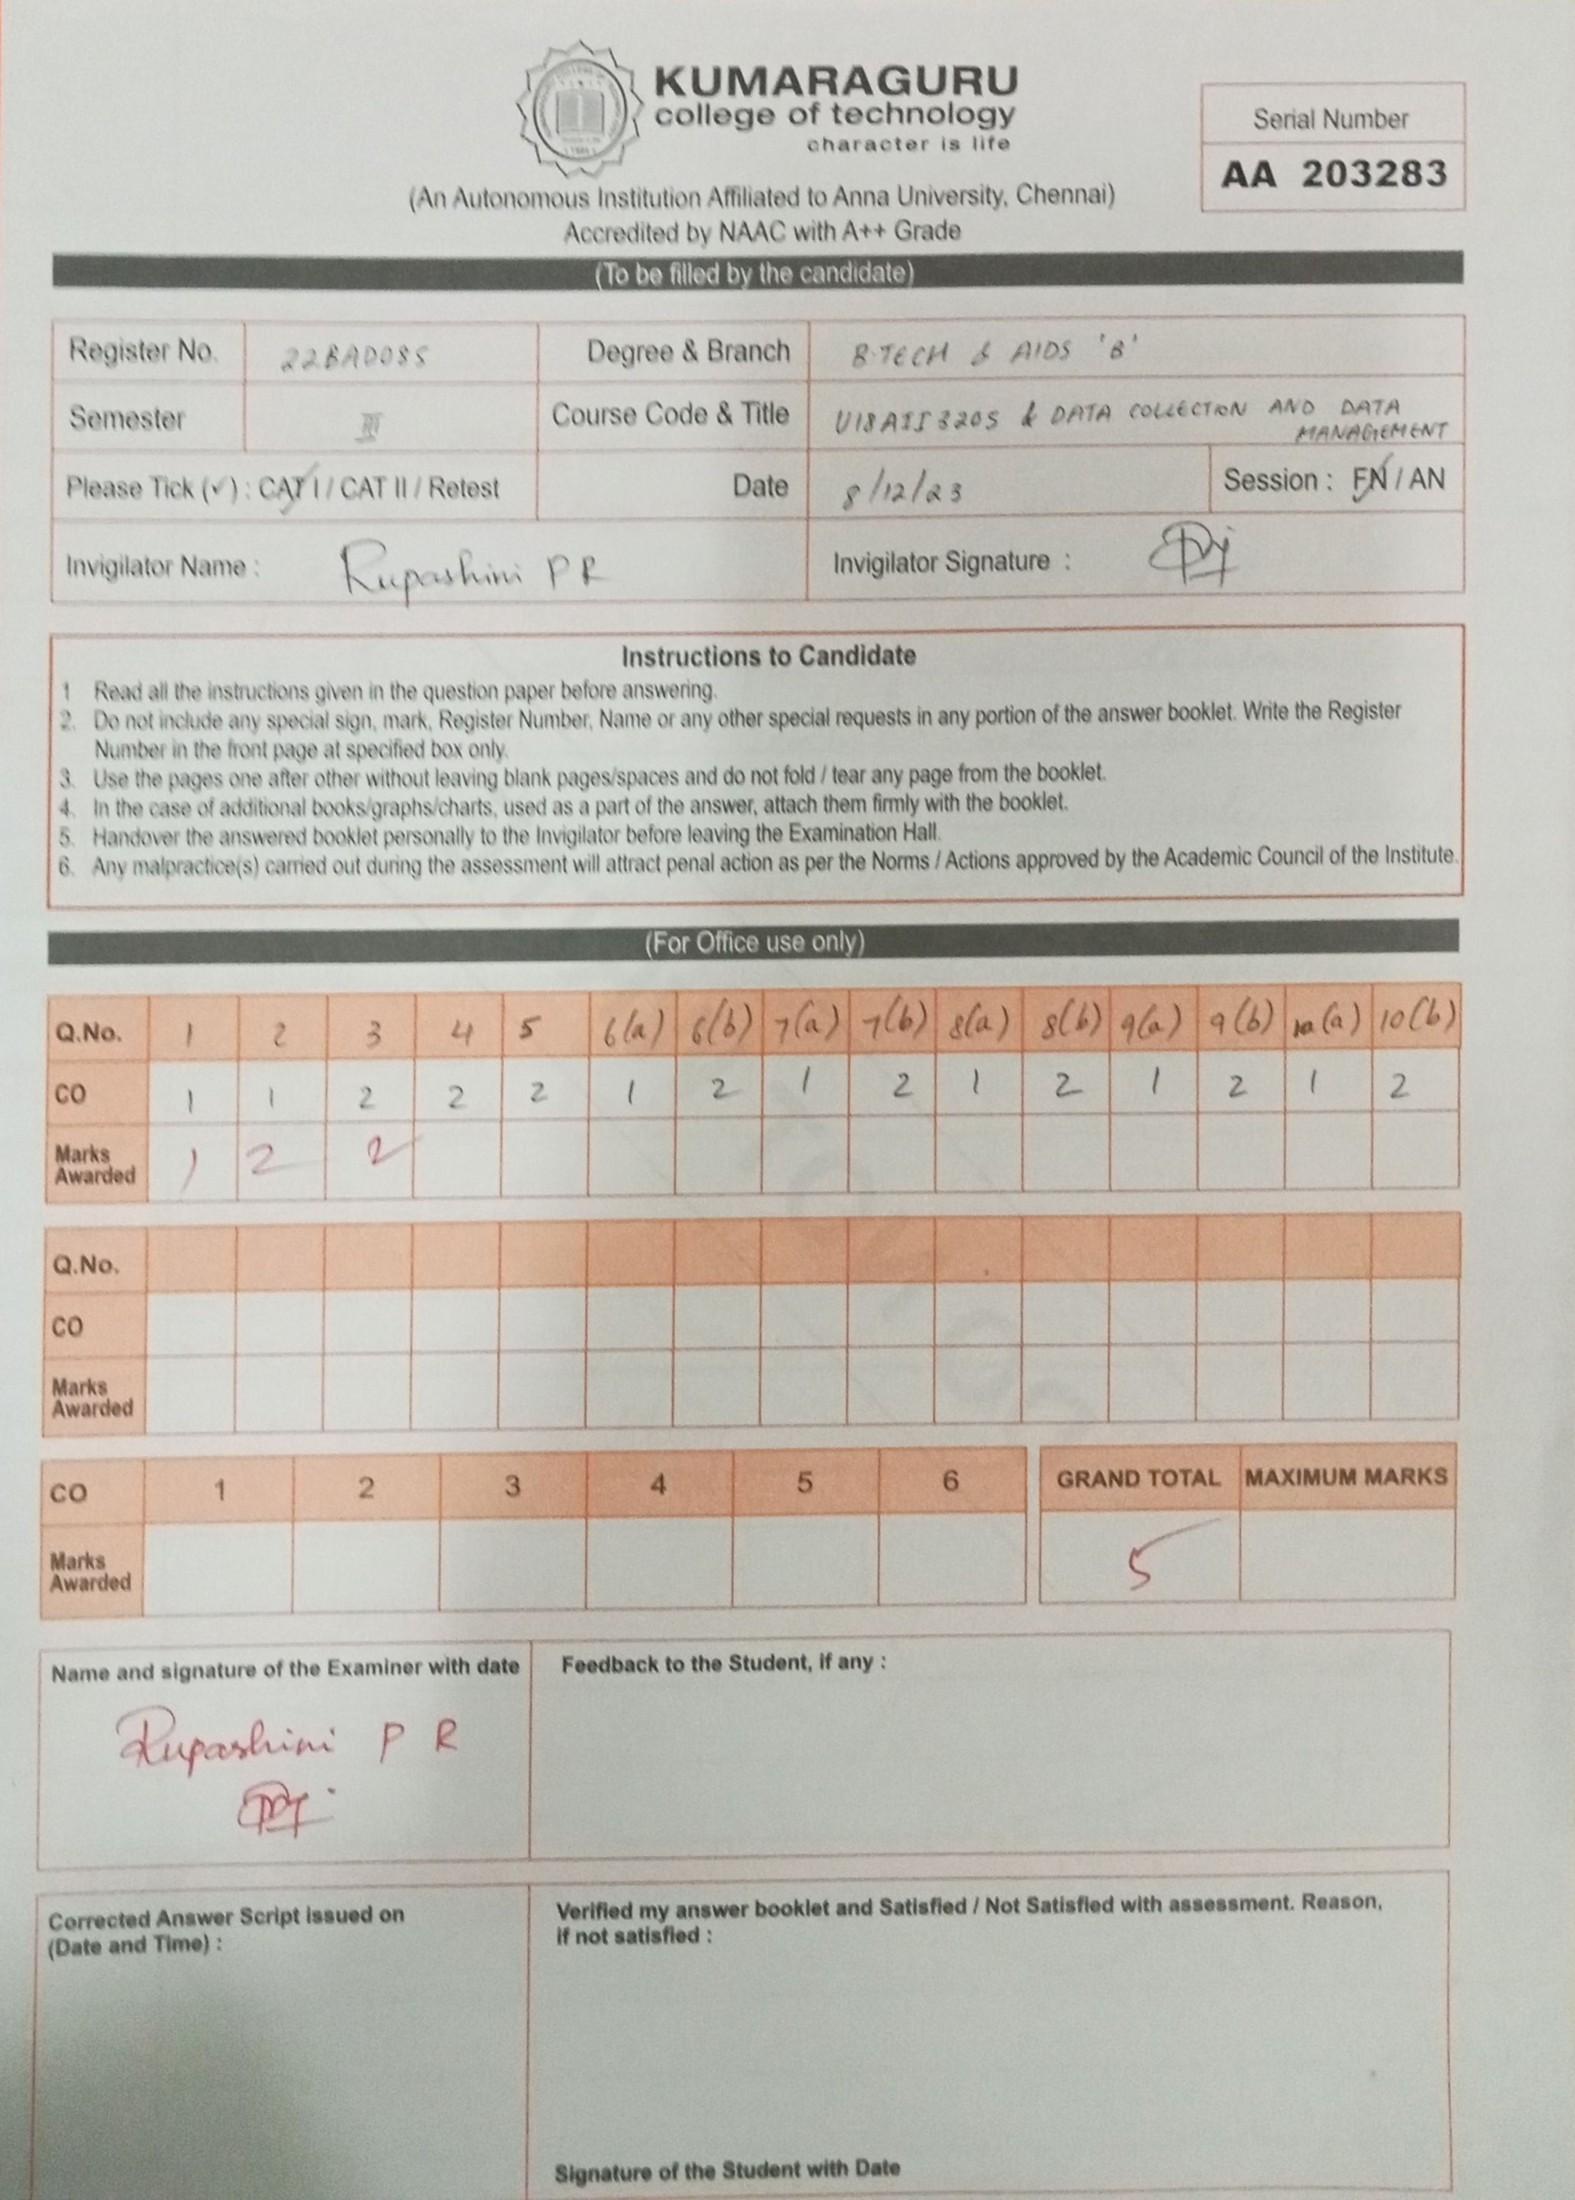 KUMARAGURU
college of technology
character is life
Serial Number
AA 203283
(An Autonomous Institution Affiliated to Anna University, Chennai)
Accredited by NAAC with A++ Grade
(To be filled by the candidate)
Register No. 22BAD085 Degree & Branch B.TECH & AIDS 'B'
Semester III Course Code & Title U18AII3205 & DATA COLLECTION AND DATA
MANAGEMENT
Please Tick (✓) : CAT I / CAT II / Retest Date 8/12/23 Session : FN / AN
Invigilator Name : Rupashini P R Invigilator Signature :
Instructions to Candidate
1 Read all the instructions given in the question paper before answering.
2. Do not include any special sign, mark, Register Number, Name or any other special requests in any portion of the answer booklet. Write the Register
Number in the front page at specified box only.
3. Use the pages one after other without leaving blank pages/spaces and do not fold / tear any page from the booklet.
4. In the case of additional books/graphs/charts, used as a part of the answer, attach them firmly with the booklet.
5. Handover the answered booklet personally to the Invigilator before leaving the Examination Hall.
6. Any malpractice(s) carried out during the assessment will attract penal action as per the Norms / Actions approved by the Academic Council of the Institute.
(For Office use only)
Q.No. 1 2 3 4 5 6(a) 6(b) 7(a) 7(b) 8(a) 8(b) 9(a) 9(b) 10(a) 10(b)
CO 1 1 2 2 2 1 2 1 2 1 2 1 2 1 2
Marks
Awarded 1 2 2
Q.No.
CO
Marks
Awarded
CO 1 2 3 4 5 6 GRAND TOTAL MAXIMUM MARKS
Marks
Awarded 5
Name and signature of the Examiner with date
Rupashini P R
Feedback to the Student, if any :
Corrected Answer Script issued on
(Date and Time) :
Verified my answer booklet and Satisfied / Not Satisfied with assessment. Reason,
if not satisfied :
Signature of the Student with Date